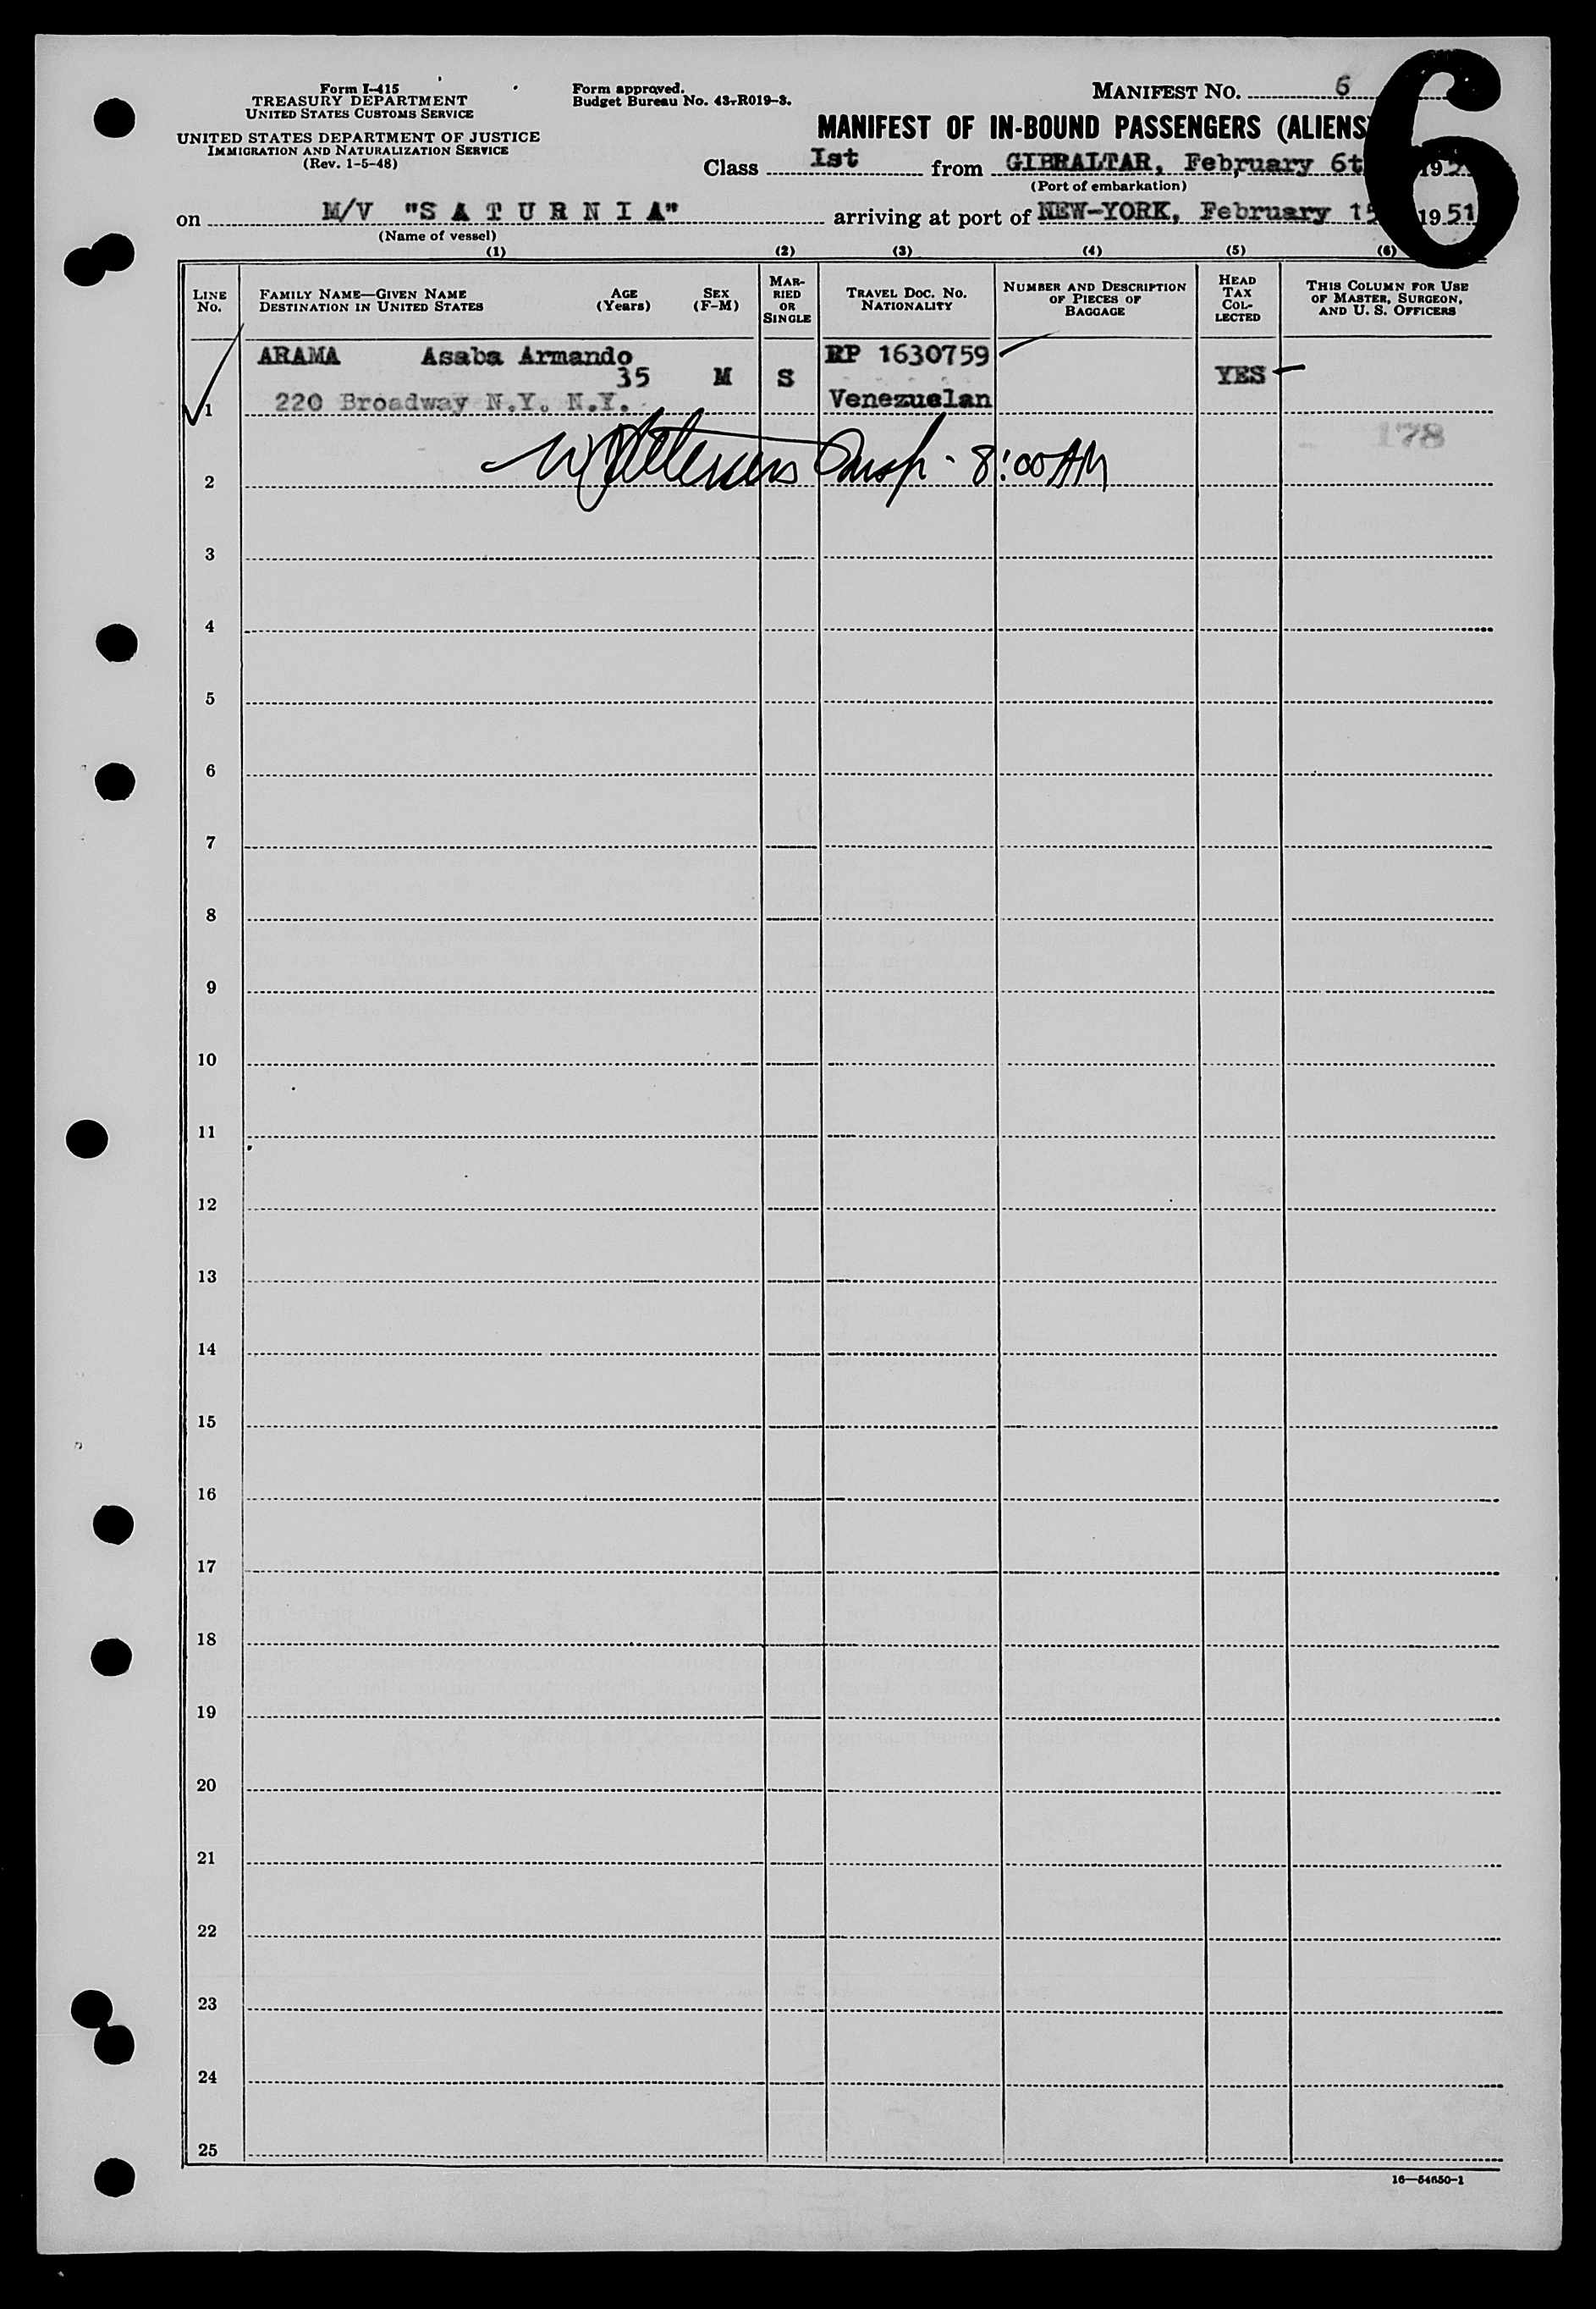 Form I-415
TREASURY DEPARTMENT
UNITED STATES CUSTOMS SERVICE
UNITED STATES DEPARTMENT OF JUSTICE
IMMIGRATION AND NATURALIZATION SERVICE
(Rev. 1-5-48)
Form approved.
Budget Bureau No. 43-R019-3.
MANIFEST NO. 6
6
MANIFEST OF IN-BOUND PASSENGERS (ALIENS
Class Ist from GIBRALTAR, February 6t 195
(Port of embarkation)
on M/V "S A T U R N I A" arriving at port of NEW-YORK, February 15 1951
(Name of vessel)
(1) (2) (3) (4) (5) (6)
LINE No.
FAMILY NAME—GIVEN NAME
DESTINATION IN UNITED STATES
AGE (Years)
SEX (F-M)
MARRIED OR SINGLE
TRAVEL DOC. NO.
NATIONALITY
NUMBER AND DESCRIPTION OF PIECES OF BAGGAGE
HEAD TAX COLLECTED
THIS COLUMN FOR USE OF MASTER, SURGEON, AND U. S. OFFICERS
ARAMA Asaba Armando RP 1630759
35 M S YES
1 220 Broadway N.Y. N.Y. Venezuelan
178
2 Insp - 8:00 AM
3
4
5
6
7
8
9
10
11
12
13
14
15
16
17
18
19
20
21
22
23
24
25
16—54650-1